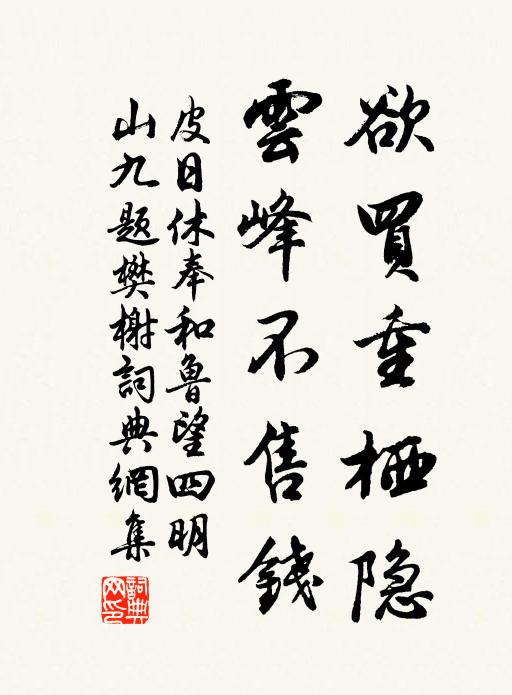 欲買重栖隐
雲峰不售錢
皮日休奉和魯望四明
山九题樊榭詞典網集
詞典网印